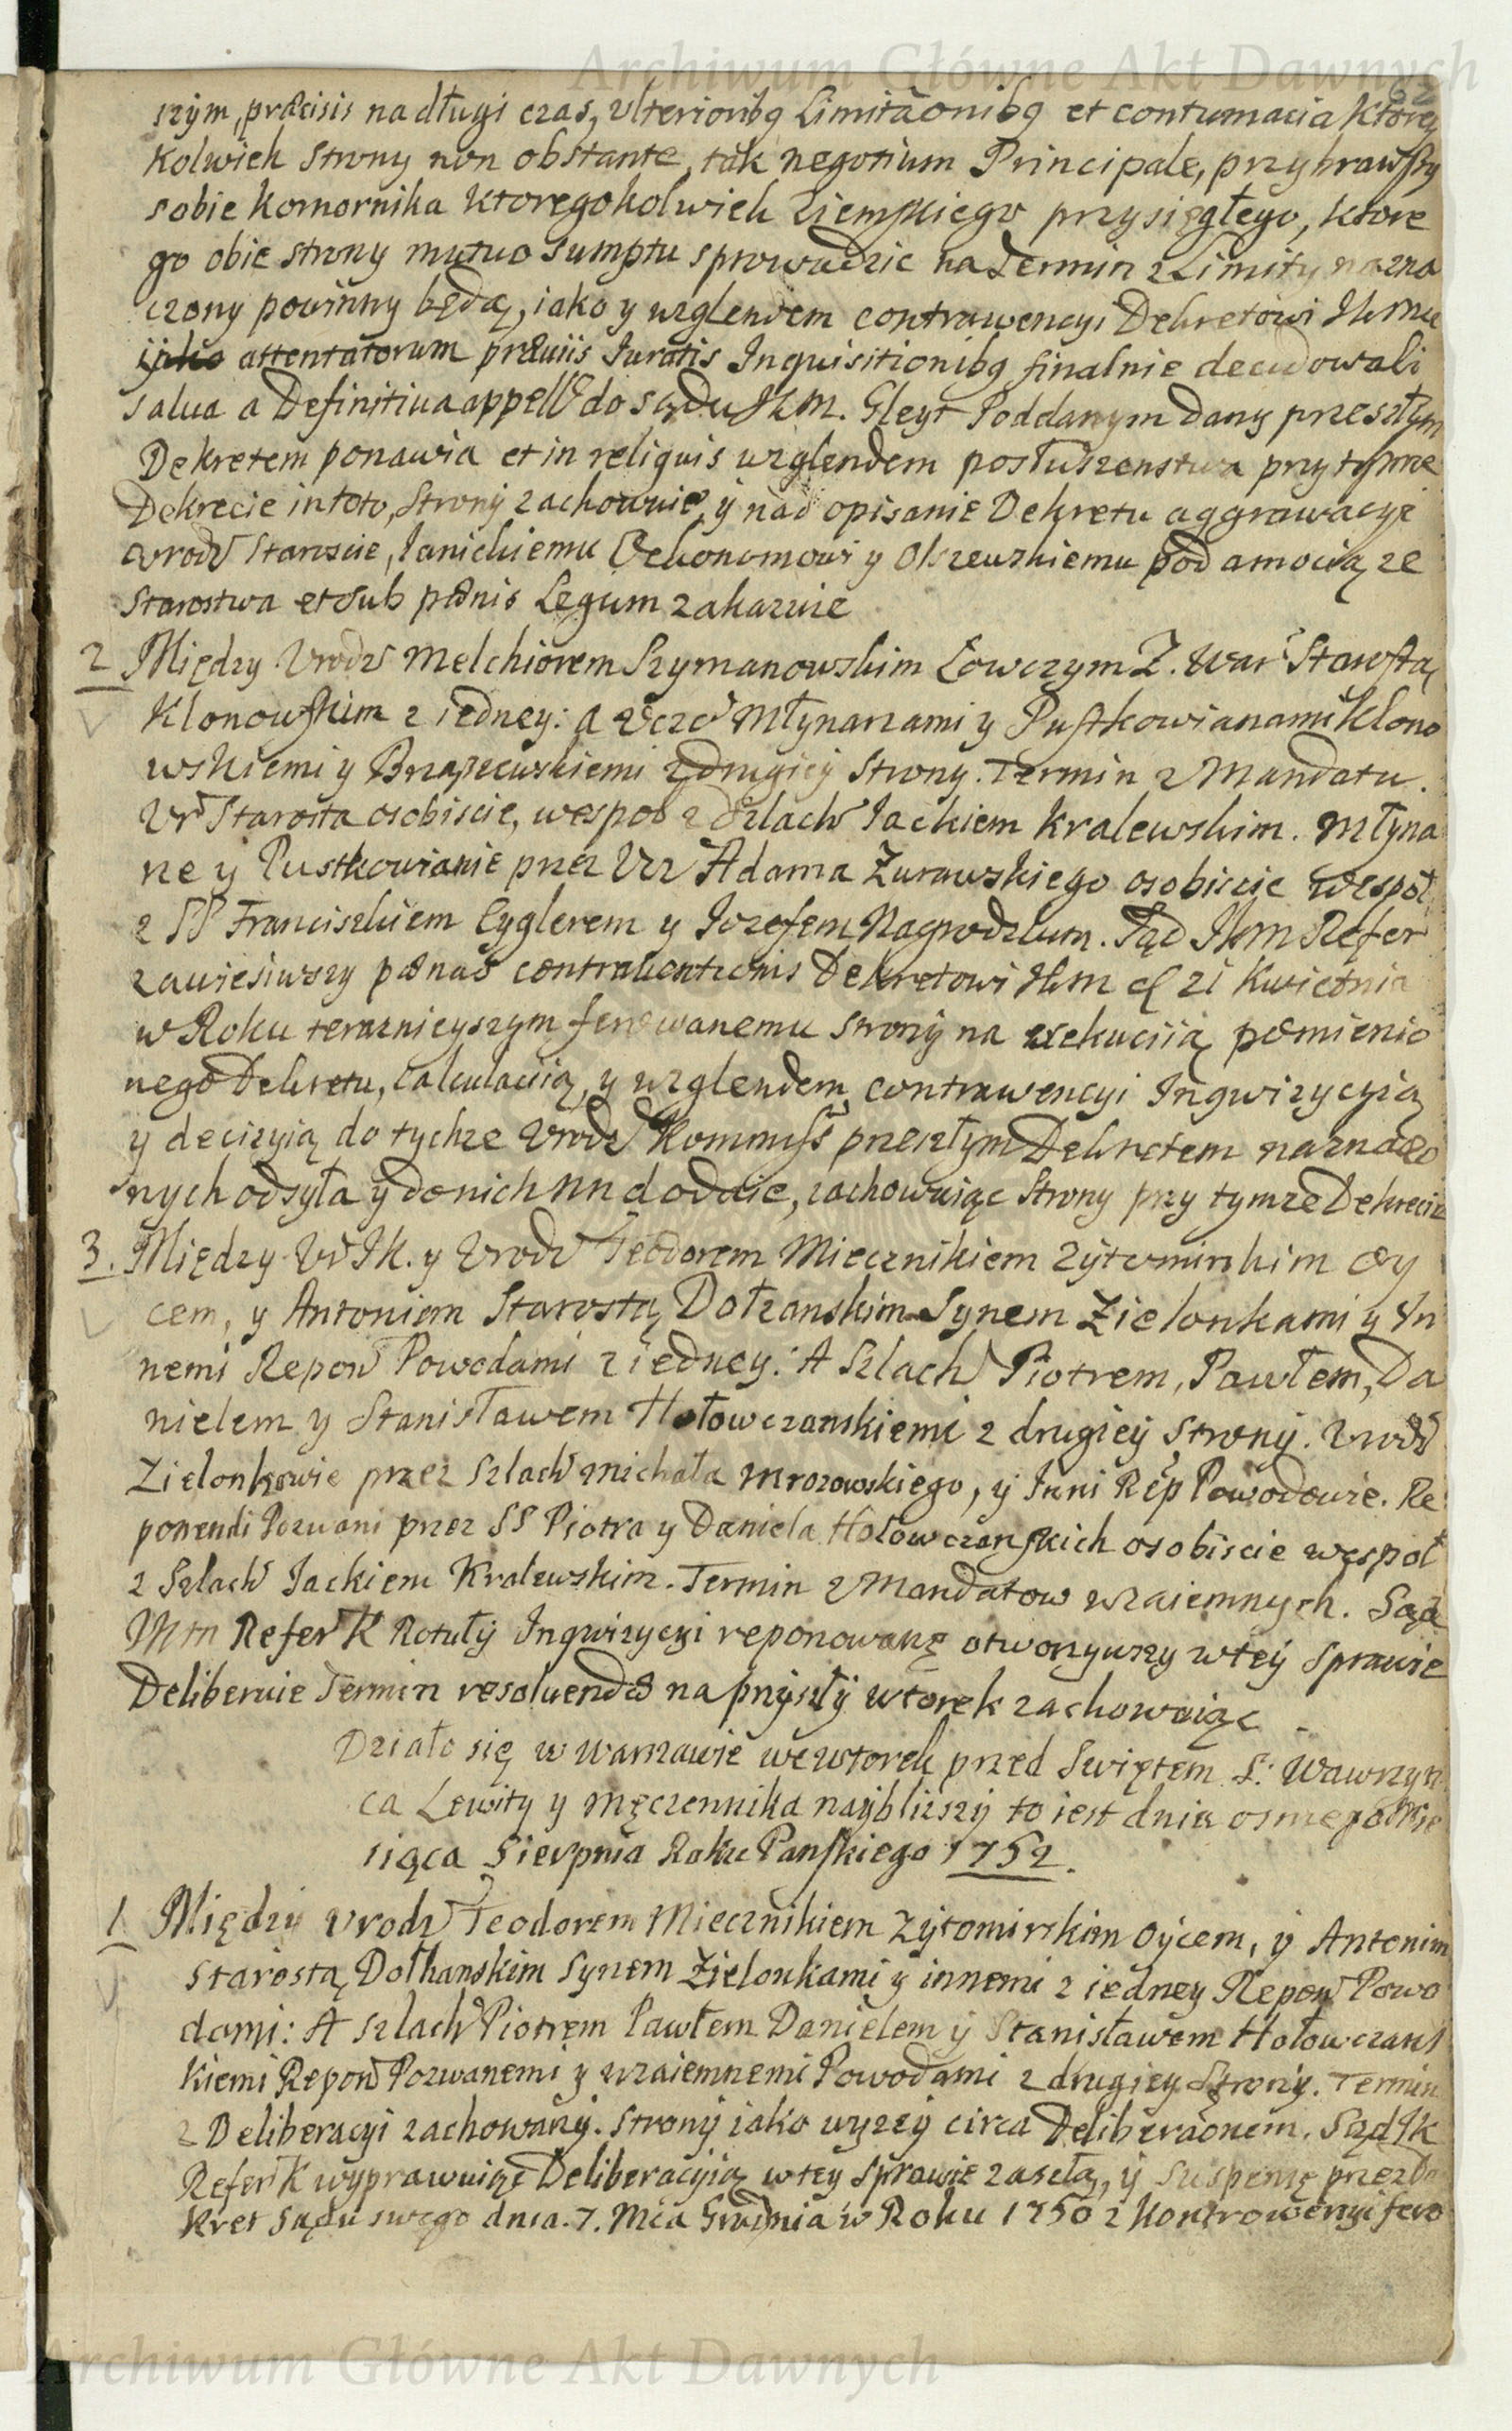 Archiwum Główne Akt Dawnych
62
szym, præcisis na długi czas, ulterioribq Limitãonibq et contumacia ktorey
kolwiek strony non obstante, tak negotium Principale, przybrawszy
sobie komornika ktoregokolwiek Ziemskiego przysięgłego, ktore
go obie strony mutuo sumptu sprowadzic na Termin z Limity nazna
czony powinny będą, iako y wzglendem contrawencyi Dekretowi JKMci
attentatorum præuiis Iuratis Inquisitionibq finalnie decidowali
salua a Definitiua appelle do sądu JKM. Gleyt Poddanym dany przeszłym
Dekretem ponawia et in reliquis wzglendem posłuszenstwa przy tymze
Dekrecie in toto, Strony zachowuie, y nad opisanie Dekretu aggrawacyi
Urodz Staroscie, Ianickiemu Oekonomowi y Olszewskiemu pod amocią ze
Starostwa et sub pænis Legum zakazuie
2 Między Urodz Melchiorem Szymanowskim Łowczym Z. War Starostą
Klonowskim z iedney: a Uczc Młynarzami y Pustkowianami Klono
wskiemi y Brzązewskiemi z drugiey strony. Termin z Mandatu.
Ur Starosta osobiscie, wespoł z Szlach Iackiem Kralewskim. Młyna
rze y Pustkowianie przez Urr Adama Zurawskiego osobiscie wespół
z SS Franciszkiem Cyglerem y Iozefem Nagrodzkim. Sąd JKM Refer
zawiesiwszy pænas contrauentionis Dekretowi JKM d 21 Kwietnia
w Roku teraznieyszym ferowanemu strony na exekuciią pomienio
nego Dekretu, calculacią, y wzglendem contrawencyi Ingwizycyią
y decizyią do tychze Urodz Kommiss przeszłym Dekretem naznaczo
nych odsyła y do nich nn dodaie, zachowuiąc Strony przy tymze Dekrecie
3. Między Ur Ik. y Urodz Teodorem Miecznikiem Zytomirskim Oy
cem, y Antoniem Starostą Dołzanskim Synem Zielonkami y In
nemi Repon Powodami z iedney: A Szlach Piotrem, Pawłem, Da
nielem y Stanisławem Hołowczanskiemi z drugiey strony. Urodz
Zielonkowie przez Szlach Michała Mrozowskiego, y Inni Rep Powodowie. Re
ponendi Pozwani przez SS Piotra y Daniela Hołowczanskich osobiscie wespoł
z Szlach Iackiem Kralewskim. Termin z Mandatow wzaiemnych. Sąd
Refer K Rotuły Ingwizycyi reponowaną otworzywszy w tey sprawie
Deliberuie Termin resoluendæ na przyszły wtorek zachowuiąc
Działo się w Warszawie we wtorek przed Swiętem S: Wawrzyń
ca Lewity y Męczennika naybliższy to iest dnia osmego Mie
siąca Sierpnia Roku Panskiego 1752.
1 Między Urodz Teodorem Miecznikiem Zytomirskim Oycem, y Antonim
Starostą Dołhanskim Synem Zielonkami y innemi z iedney Repon Powo
dami: A Szlach Piotrem Pawłem Danielem y Stanisławem Hołowczans
kiemi Repon Pozwanemi y wzaiemnemi Powodami z drugiey Strony. Termin
z Deliberacyi zachowany. Strony iako wyzey circa Deliberãonem. Sąd Ik
Refer K wyprawuiąc Deliberacyią w tey sprawie zaszłą, y suspensę przez De
kret Sądu swego dnia. 7. Mca Grudnia w Roku 1750 z Kontrowersyi fero
Archiwum Główne Akt Dawnych